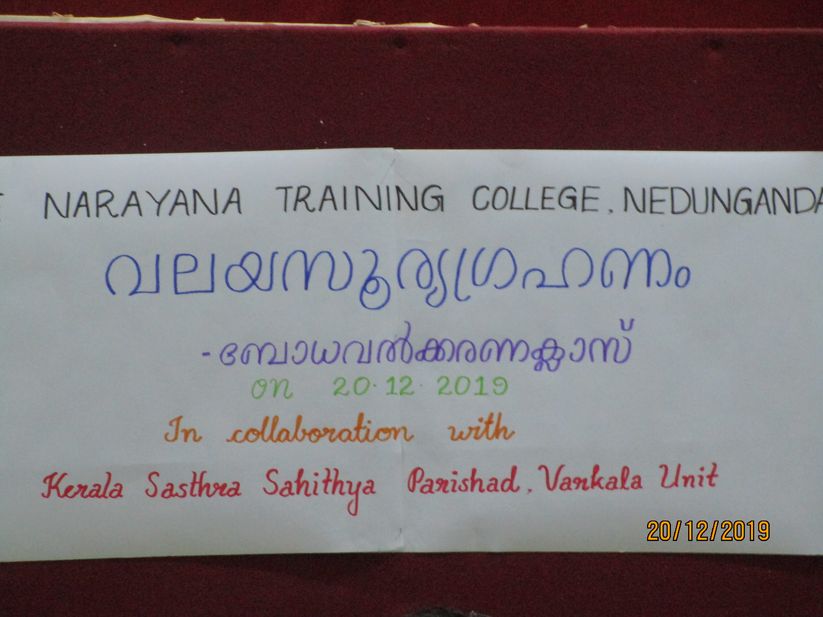 NARAYANA TRAINING COLLEGE, NEDUNGANDA
വലയസൂര്യഗ്രഹണം
- ബോധവൽക്കരണക്ലാസ്
on 20.12.2019
In collaboration with
Kerala Sasthra Sahithya Parishad, Varkala Unit
20/12/2019